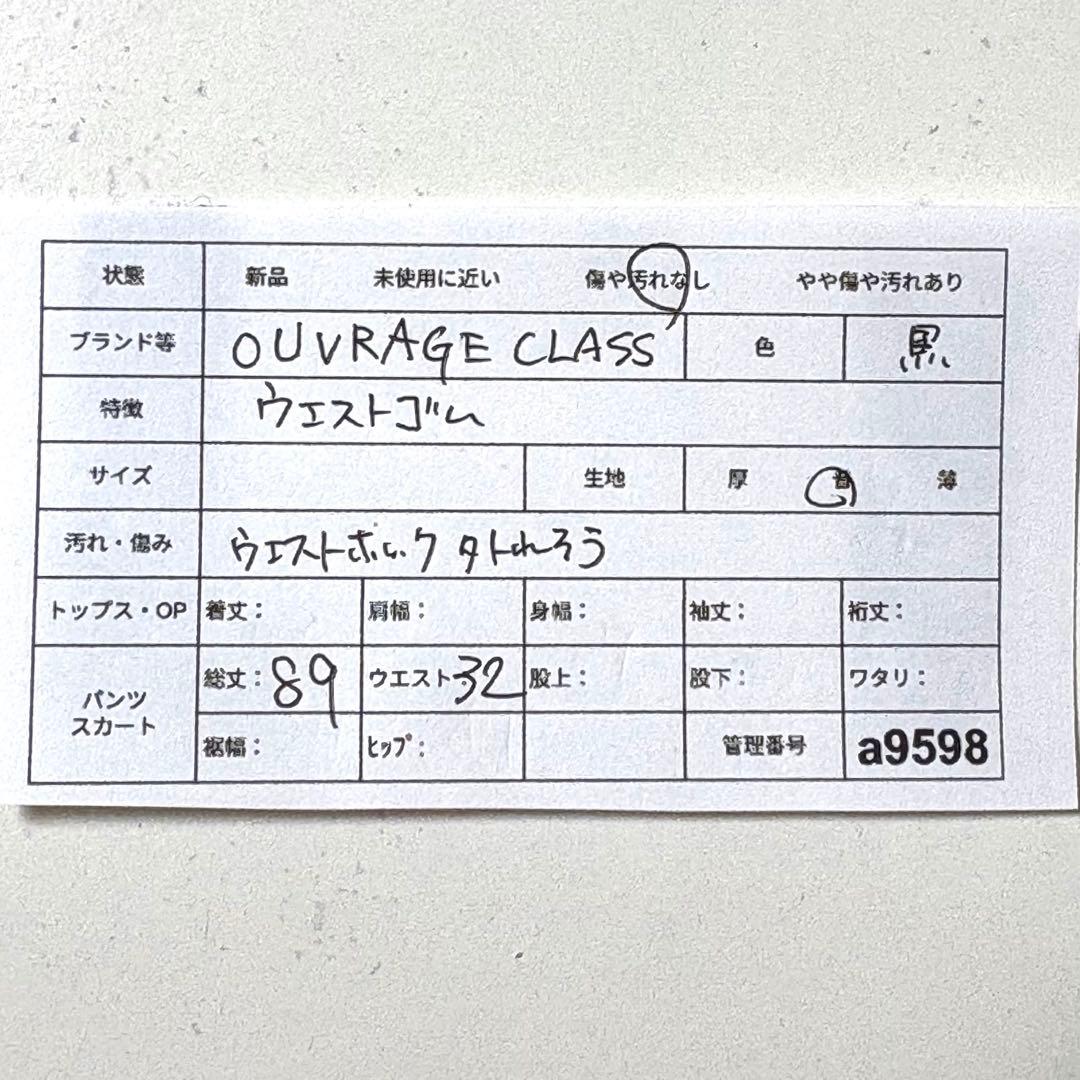 状態 新品 未使用に近い 傷や汚れなし やや傷や汚れあり
ブランド等 OUVRAGE CLASS 色 黒
特徴 ウエストゴム
サイズ 生地 厚 普 薄
汚れ・傷み ウエストホック タトれそう
トップス・OP 着丈: 肩幅: 身幅: 袖丈: 裄丈:
パンツ スカート 総丈: 89 ウエスト 32 股上: 股下: ワタリ:
裾幅: ヒップ: 管理番号 a9598